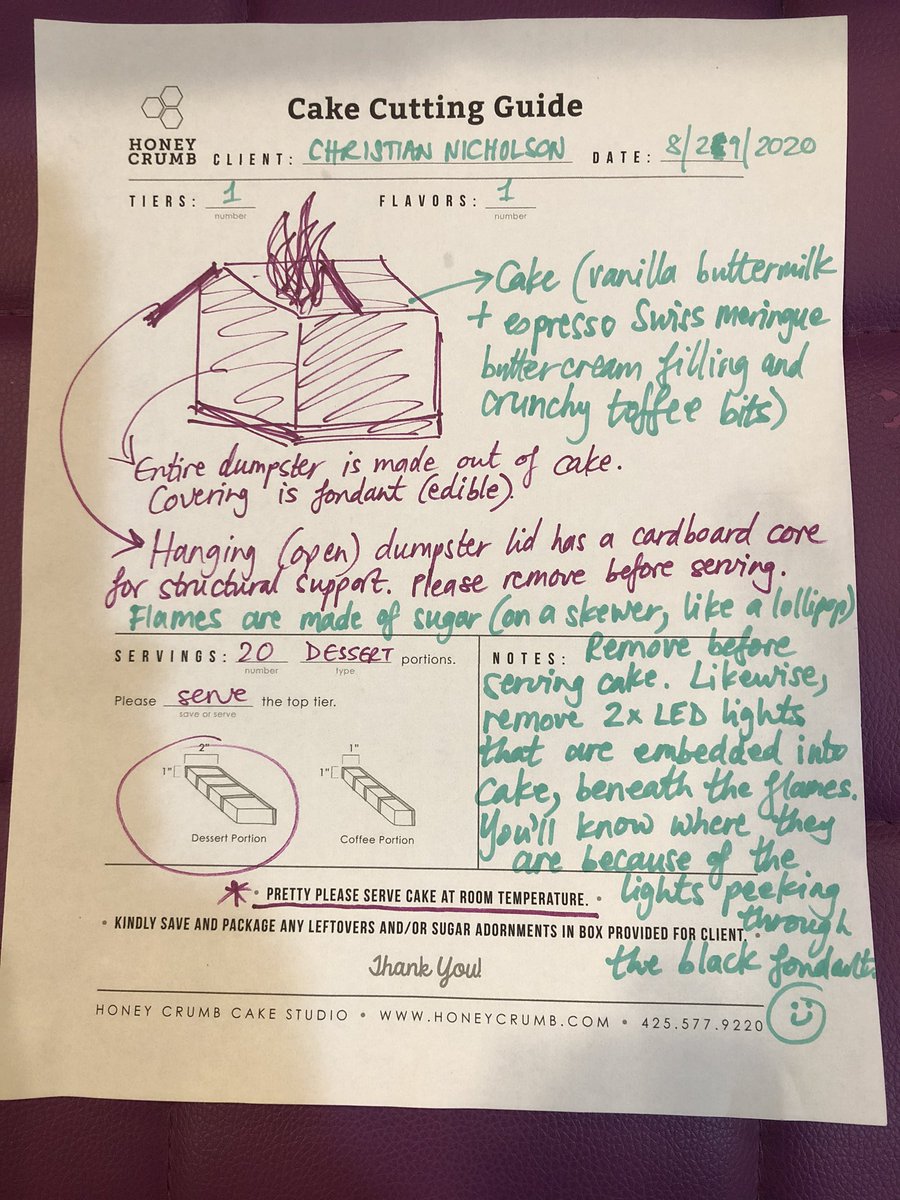 Cake Cutting Guide
HONEY
CRUMB
CLIENT: CHRISTIAN NICHOLSON DATE: 8/29/2020
TIERS: 1 FLAVORS: 1
number number
Cake (vanilla buttermilk
+ espresso Swiss meringue
buttercream filling and
crunchy toffee bits)
Entire dumpster is made out of cake.
Covering is fondant (edible).
Hanging (open) dumpster lid has a cardboard core
for structural support. Please remove before serving.
Flames are made of sugar (on a skewer, like a lollipop)
SERVINGS: 20 DESSERT portions.
number type
Please serve the top tier.
save or serve
2"
1"
Dessert Portion
1"
1"
Coffee Portion
NOTES: Remove before
serving cake. Likewise,
remove 2x LED lights
that are embedded into
cake, beneath the flames.
You'll know where they
are because of the
lights peeking
through
the black fondant.
* • PRETTY PLEASE SERVE CAKE AT ROOM TEMPERATURE. •
• KINDLY SAVE AND PACKAGE ANY LEFTOVERS AND/OR SUGAR ADORNMENTS IN BOX PROVIDED FOR CLIENT. •
Thank You!
HONEY CRUMB CAKE STUDIO • WWW.HONEYCRUMB.COM • 425.577.9220